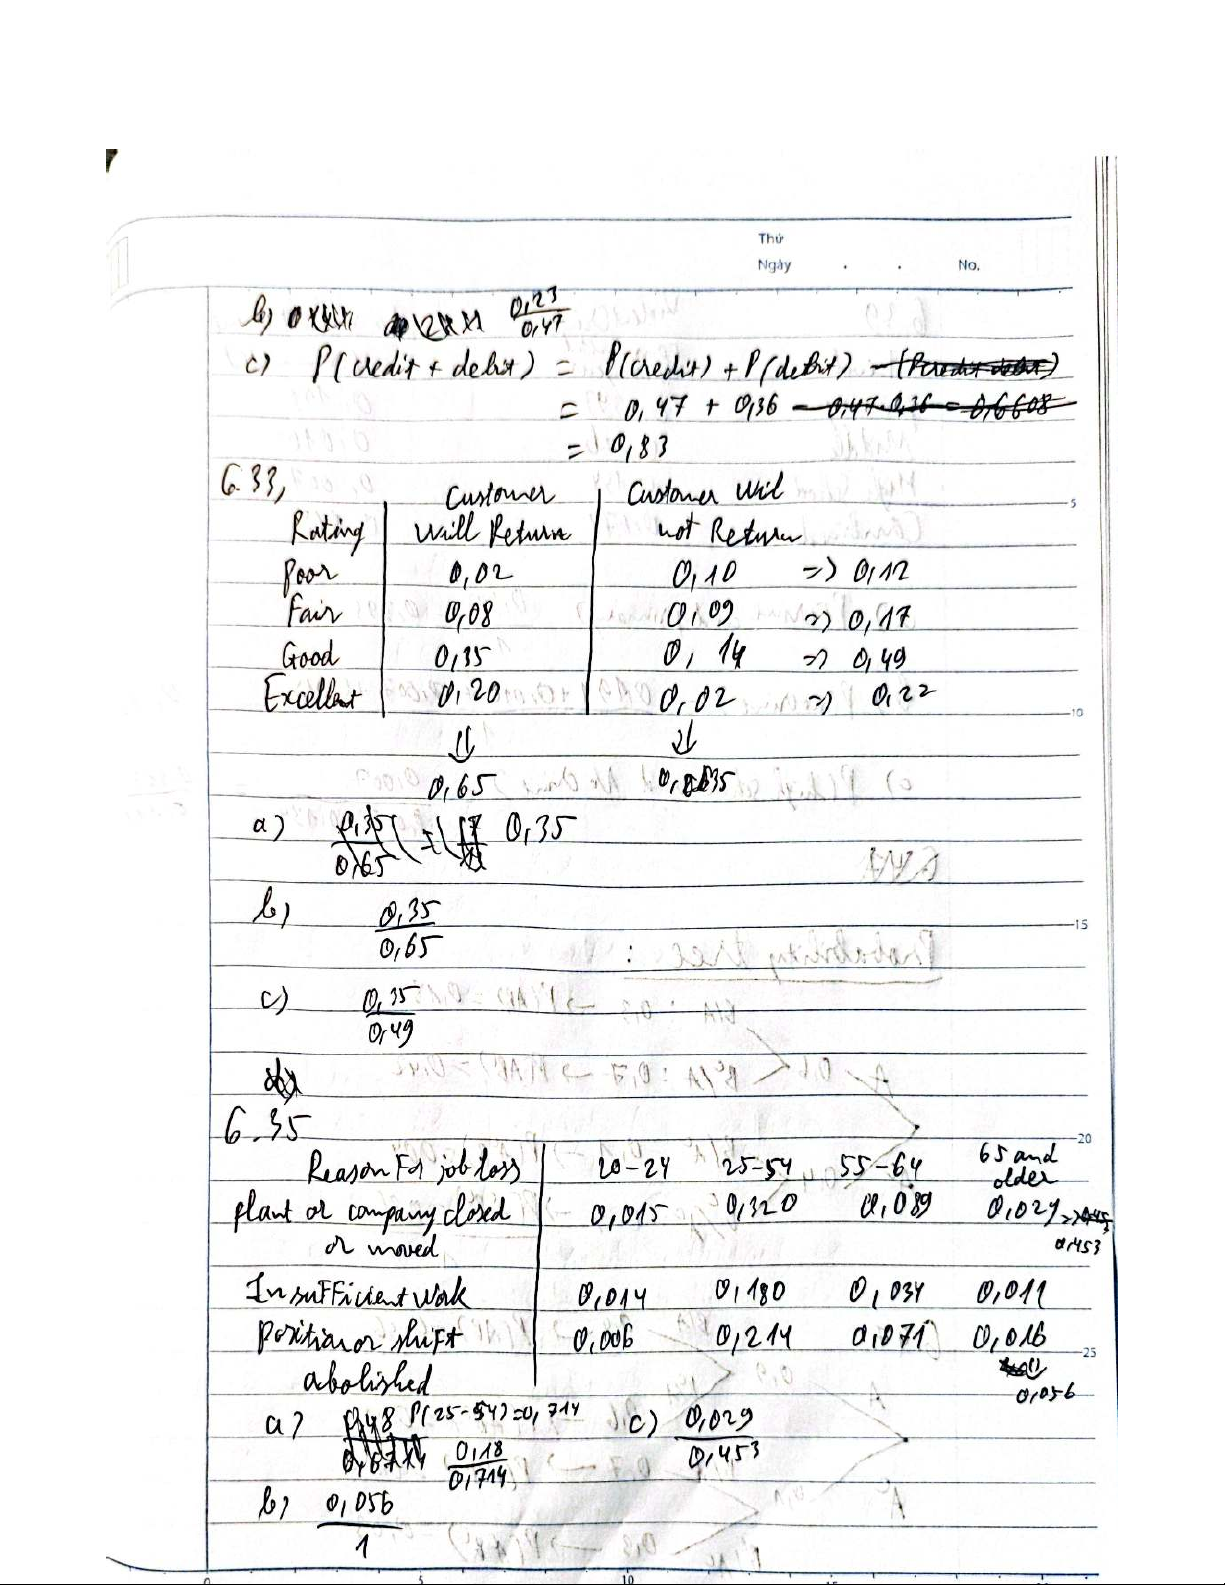 Thứ
Ngày . . No.
b) 0,23/0,47
c) P(credit + debit) = P(credit) + P(debit)
= 0,47 + 0,36 - 0,47.0,36 = 0,6608
= 0,83
6.33,
Customer | Customer Will
Rating | Will Return | not Return
Poor | 0,02 | 0,10 => 0,12
Fair | 0,08 | 0,09 => 0,17
Good | 0,35 | 0,14 => 0,49
Excellent | 0,20 | 0,02 => 0,22
⇓ ⇓
0,65 0,35
a) 0,35/0,65 0,35
b) 0,35/0,65
c) 0,35/0,49
6.35
Reason For job loss | 20-24 25-54 55-64 65 and older
plant or company closed | 0,015 0,320 0,089 0,029 =>
or moved 0,453
Insufficient work | 0,014 0,180 0,034 0,011
position or shift | 0,006 0,214 0,071 0,016
abolished ⇓
0,056
a) P(25-54)=0,714 c) 0,029/0,453
0,18/0,714
b) 0,056/1
5
10
15
20
25
0 5 10 15